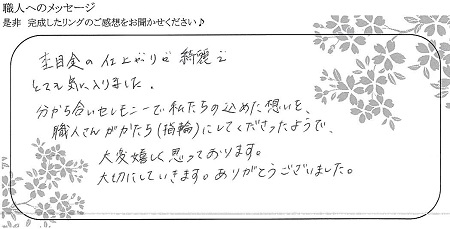 職人へのメッセージ
是非 完成したリングのご感想をお聞かせください♪
杢目金の仕上がりが綺麗で
とても気に入りました。
分かち合いセレモニーで私たちの込めた想いを、
職人さんがかたち(指輪)にしてくださったようで、
大変嬉しく思っております。
大切にしていきます。ありがとうございました。